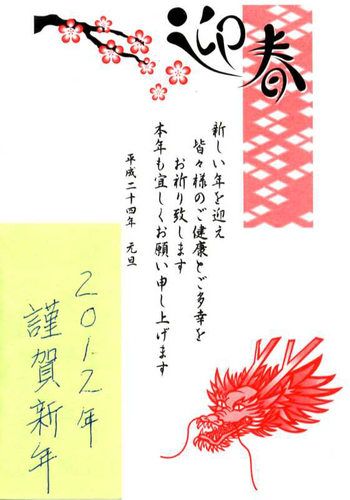 迎春
新しい年を迎え
皆々様のご健康とご多幸を
お祈り致します
本年も宜しくお願い申し上げます
平成二十四年 元旦
2012年
謹賀新年